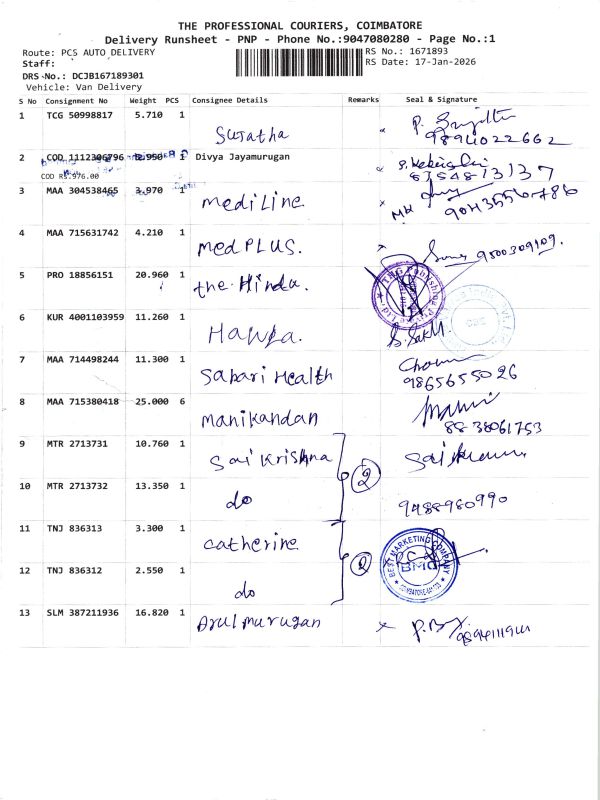 THE PROFESSIONAL COURIERS, COIMBATORE
Delivery Runsheet - PNP - Phone No.:9047080280 - Page No.:1
Route: PCS AUTO DELIVERY RS No.: 1671893
Staff: RS Date: 17-Jan-2026
DRS No.: DCJB167189301
Vehicle: Van Delivery
S No Consignment No Weight PCS Consignee Details Remarks Seal & Signature
1 TCG 50998817 5.710 1 Sujatha
9894022662
2 COD 1112306796 1 Divya Jayamurugan
8754813137
COD RS.976.00
3 MAA 304538465 3.970 1 MediLine
4 MAA 715631742 4.210 1 MedPLUS. 9500309109.
5 PRO 18856151 20.960 1 the Hindu.
6 KUR 4001103959 11.260 1
7 MAA 714498244 11.300 1 Sabari Health
9865655026
8 MAA 715380418 25.000 6 Manikandan
88-38061753
9 MTR 2713731 10.760 1 Sai Krishna
2
10 MTR 2713732 13.350 1 do 9488980990
11 TNJ 836313 3.300 1 Catherine
BEST MARKETING COMPANY
BMC
2
12 TNJ 836312 2.550 1 do
13 SLM 387211936 16.820 1 Arul murugan